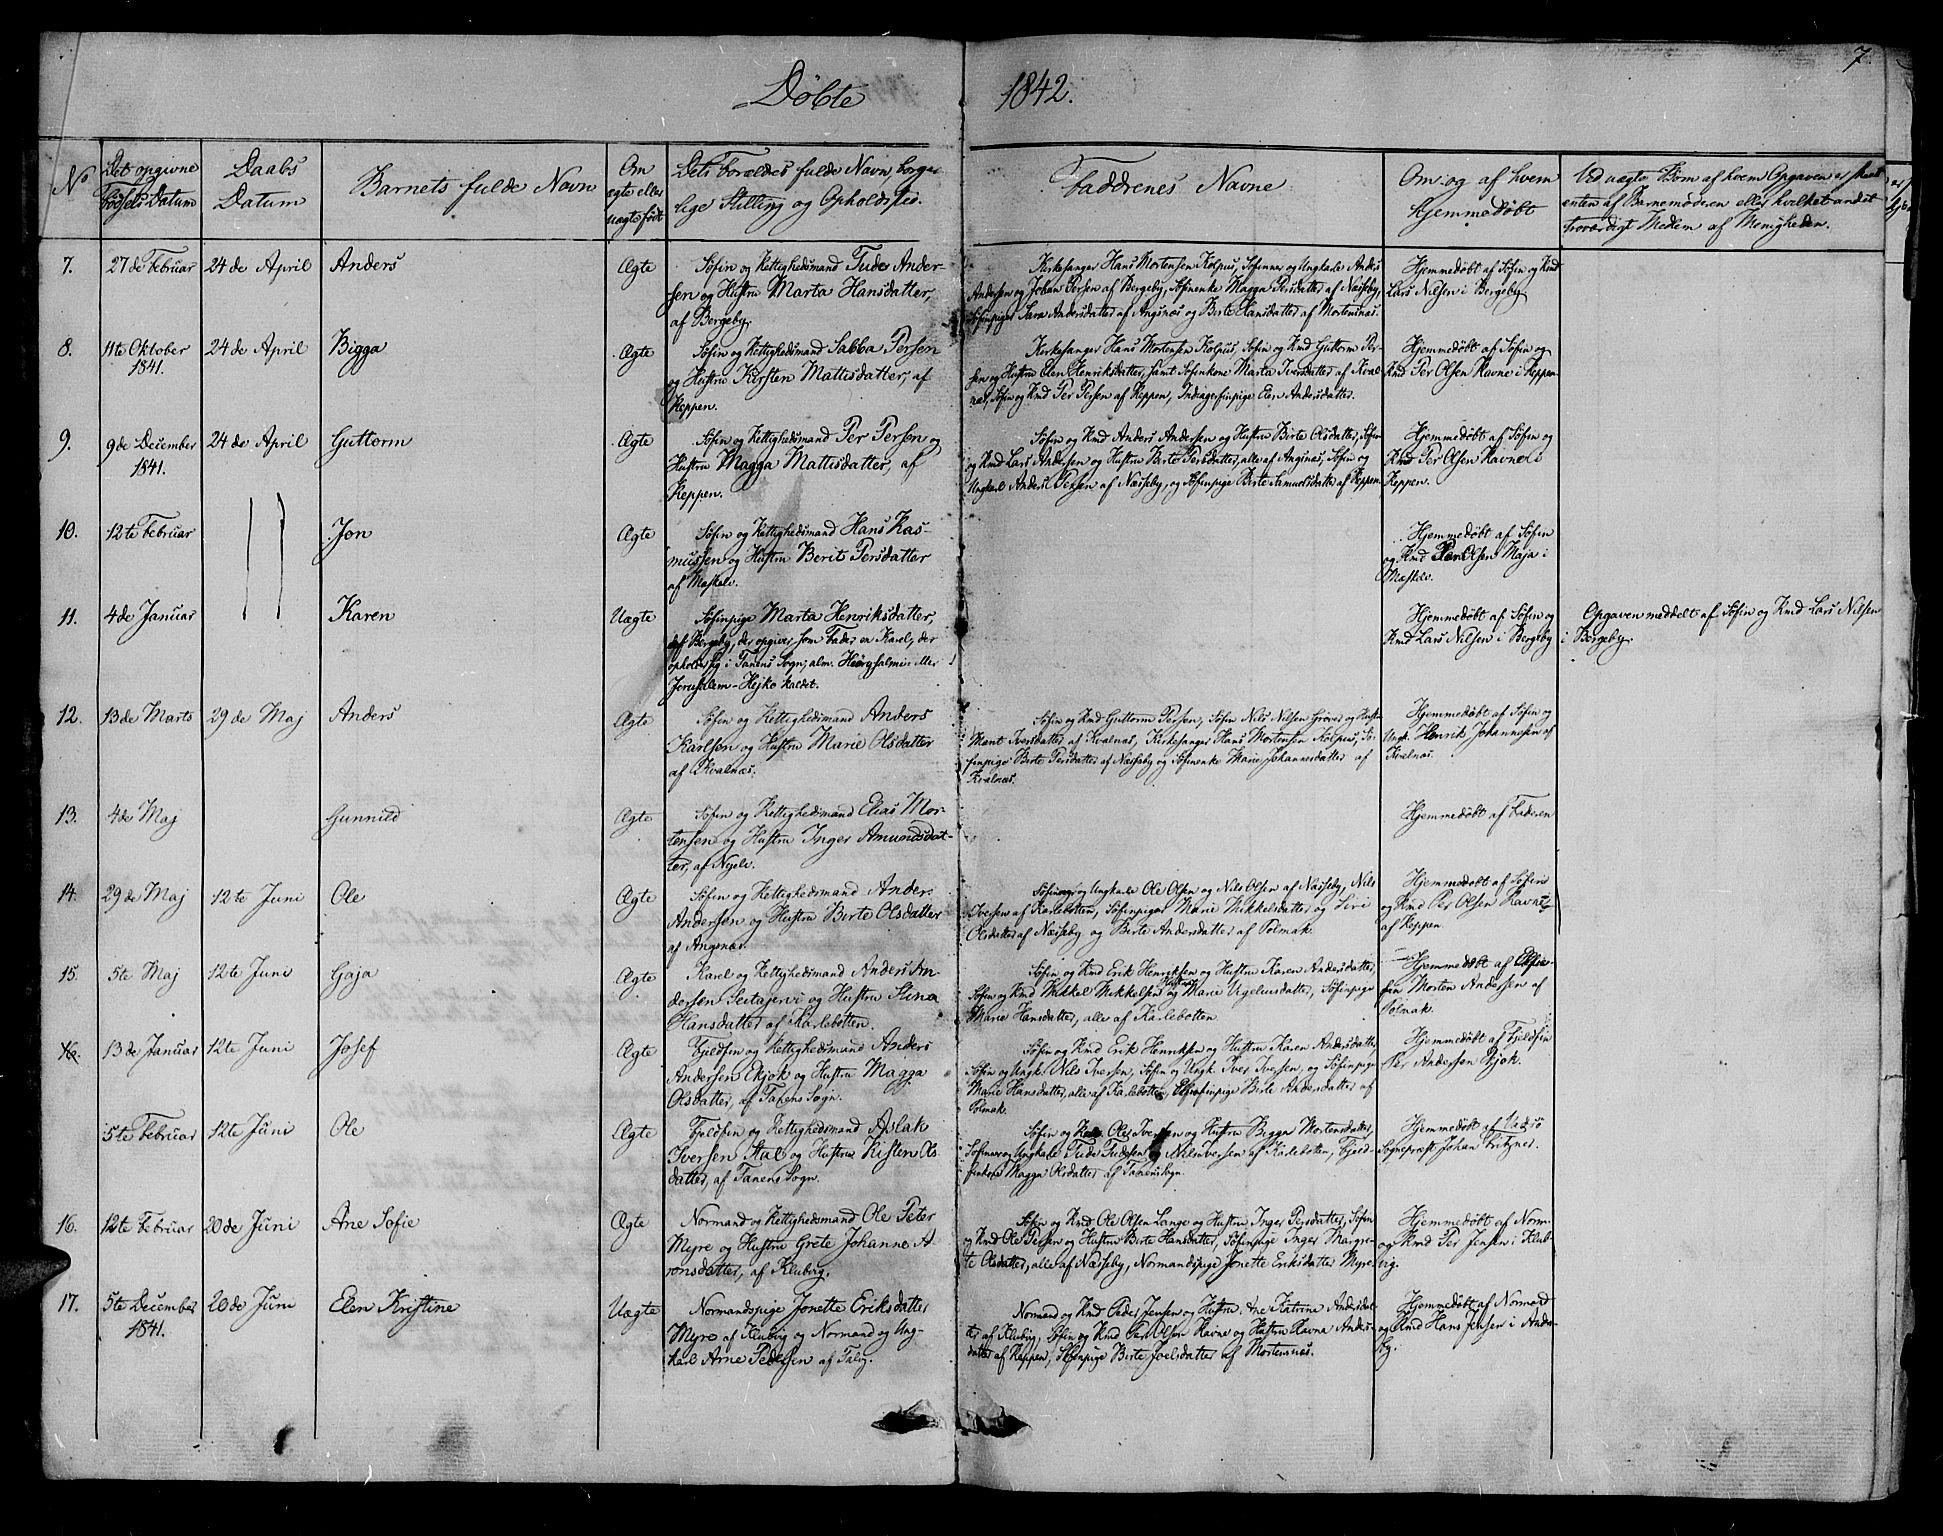 7.
Döbte 1842.
No
Det opgivne Fødsels Datum
Daabs Datum
Barnets fulde Navn
Om ægte eller uægte født
Dets Forældres fulde Navn, borgerlige Stilling og Opholdssted.
Faddrenes Navne
Om og af hvem hjemmedöbt
Ved uægte Børn af hvem Opgaven er skeet enten af Barnemoderen eller hvilket andet troværdigt Medlem af Menigheden.
7. 27de Februar 24de April Anders Ægte
Söfin og Rettighedsmand Tude Ander-
sen og Hustru Marta Hansdatter,
af Bergeby.
Kirkesanger Hans Mortensen Kolpus, Söfinner og Ungkarle Anders
Andersen og Johan Persen af Bergeby, Söfinenke Magga Persdatter af Næsseby,
Söfinpiger Sara Andersdatter af Angsnæs og Birte Hansdatter af Mortensnæs.
Hjemmedöbt af Söfin og Rmd
Lars Nilsen i Bergeby
8. 11te Oktober 1841. 24de April Bigga Ægte
Söfin og Rettighedsmand Sabba Persen
og Hustru Kirsten Mattisdatter, af
Reppen.
Kirkesanger Hans Mortensen Kolpus, Söfin og Rmd Guttorm Per-
sen og Hustru Elen Henriksdatter, samt Söfinkone Marta Iversdatter af Kval-
næs, Söfin og Rmd Per Persen af Reppen, Indiagerfinpige Elen Andersdatter.
Hjemmedöbt af Söfin og
Rmd Per Olsen Ravne i Reppen
9. 9de December 1841. 24de April Guttorm Ægte
Söfin og Rettighedsmand Per Persen og
Hustru Magga Mattisdatter, af
Reppen.
Söfin og Rmd Anders Andersen og Hustru Birte Olsdatter, Söfin
og Rmd Lars Andersen og Hustru Birte Persdatter, alle af Angsnæs, Söfin og
Ungkarl Anders Persen af Næsseby, og Söfinpige Birte Samuelsdatter af Reppen
Hjemmedöbt af Söfin og
Rmd Per Olsen Ravne i
Reppen.
10. 12te Februar Jon Ægte
Söfin og Rettighedsmand Hans Ras-
mussen og Hustru Berit Persdatter
af Maskele.
Hjemmedöbt af Söfin
og Rmd Olsen Maja i
Maskele.
11. 4de Januar Karen Uægte
Söfinpige Marta Henriksdatter,
af Bergeby, der opgiver, som Fader en Karl, der
opholder sig i Tanens Sogn, alm. eller
Jerusalem-Hejko kaldet.
Hjemmedöbt af Söfin og
Rmd Lars Nilsen i Bergeby
Opgaven meddelt af Söfin og Rmd Lars Nilsen
i Bergeby.
12. 13de Marts 29de Maj Anders Ægte
Söfin og Rettighedsmand Anders
Karlsen og Hustru Marie Olsdatter
af Kvalnæs.
Söfin og Rmd Guttorm Persen, Söfin Nils Nilsen og Hustru
Marit Iversdatter af Kvalnæs, Kirkesanger Hans Mortensen Kolpus, Sö-
finpige Birte Persdatter af Næsseby og Söfinenke Marie Johannesdatter af
Kvalnæs.
Hjemmedöbt af Söfin og
Ungk. Henrik Johannesen af
Kvalnæs.
13. 4de Maj Gunnild Ægte
Söfin og Rettighedsmand Elias Mor-
tensen og Hustru Inger Amundsdat-
ter, af Nyelv.
Hjemmedöbt af Faderen
14. 29de Maj 12te Juni Ole Ægte
Söfin og Rettighedsmand Anders
Andersen og Hustru Birte Olsdatter
af Angsnæs.
Söfinner og Ungkarle Ole Olsen og Nils Olsen af Næsseby, Nils
Iversen af Karlebotten, Söfinpiger Marie Mikkelsdatter og Siri
Olsdatter af Næsseby og Birte Andersdatter af Polmak.
Hjemmedöbt af Söfin
og Rmd Per Olsen Ravne
af Reppen.
15. 5te Maj 12te Juni Gaja Ægte
Karl og Rettighedsmand Anders An-
dersen Seitajervi og Hustru Stina
Hansdatter af Karlebotten.
Söfin og Rmd Erik Henriksen og Hustru Karen Andersdatter,
Söfin og Rmd Mikkel Mikkelsen og Hustru Marie Vigeliusdatter, Söfinpige
Marie Hansdatter, alle af Karlebotten
Hjemmedöbt af
fin Morten Andersen af
Polmak.
16. 13de Januar 12te Juni Josef Ægte
Fjeldfin og Rettighedsmand Anders
Andersen Ekjok og Hustru Magga
Olsdatter, af Tanens Sogn.
Söfin og Rmd Erik Henriksen og Hustru Karen Andersdatter,
Söfin og Ungk. Nils Iversen, Söfin og Ungk. Iver Iversen, og Söfinpige
Marie Hansdatter, alle af Karlebotten, Elvefinpige Birte Andersdatter af
Polmak.
Hjemmedöbt af Fjeldfin
Per Andersen Ekjok.
5te Februar 12te Juni Ole Ægte
Fjeldfin og Rettighedsmand Aslak
Iversen Stal og Hustru Kisten Ols-
datter, af Tanens Sogn.
Söfin og Rmd Ole Iversen og Hustru Bigga Mortensdatter,
Söfinner og Ungkarle Tude Tudesen Nils Iversen af Karlebotten, Fjeld-
finkone Magga Olsdatter af Tanens Sogn.
Hjemmedöbt af Vadsö
Sognepræst Johan Fritzner.
16. 12te Februar 20de Juni Ane Sofie Ægte
Normand og Rettighedsmand Ole Peter
Myre og Hustru Grete Johanne A-
ronsdatter, af Kluberg.
Söfin og Rmd Ole Olsen Lange og Hustru Inger Persdatter, Söfin
og Rmd Ole Persen og Hustru Birte Hansdatter, Söfinpige Inger Margre-
te Olsdatter, alle af Næsseby, Normandspige Jonette Eriksdatter Myre
Hjemmedöbt af Norm.
og Rmd Per Jensen i Klub-
vig.
17. 5te December 1841. 20de Juni Elen Kristine Uægte
Normandspige Jonette Eriksdatter
Myre af Kluberg og Normand og Ung-
karl Arne Pedersen af Talvig.
Normand og Rmd Peder Jensen og Hustru Ane Katrine Andersdat-
ter af Kluberg, Söfin og Rmd Per Olsen Ravne og Hustru Ravna Anders-
datter af Reppen, Söfinpige Birte Joelsdatter af Mortensnæs.
Hjemmedöbt af Normand
og Rmd Hans Jensen i Ands-
by.